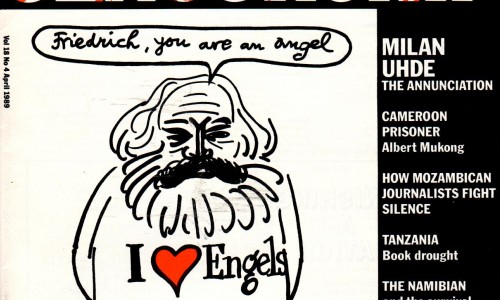 Friedrich, you are an angel
Vol 18 No 4 April 1989
I ❤ Engels
MILAN
UHDE
THE ANNUNCIATION
CAMEROON
PRISONER
Albert Mukong
HOW MOZAMBICAN
JOURNALISTS FIGHT
SILENCE
TANZANIA
Book drought
THE NAMIBIAN